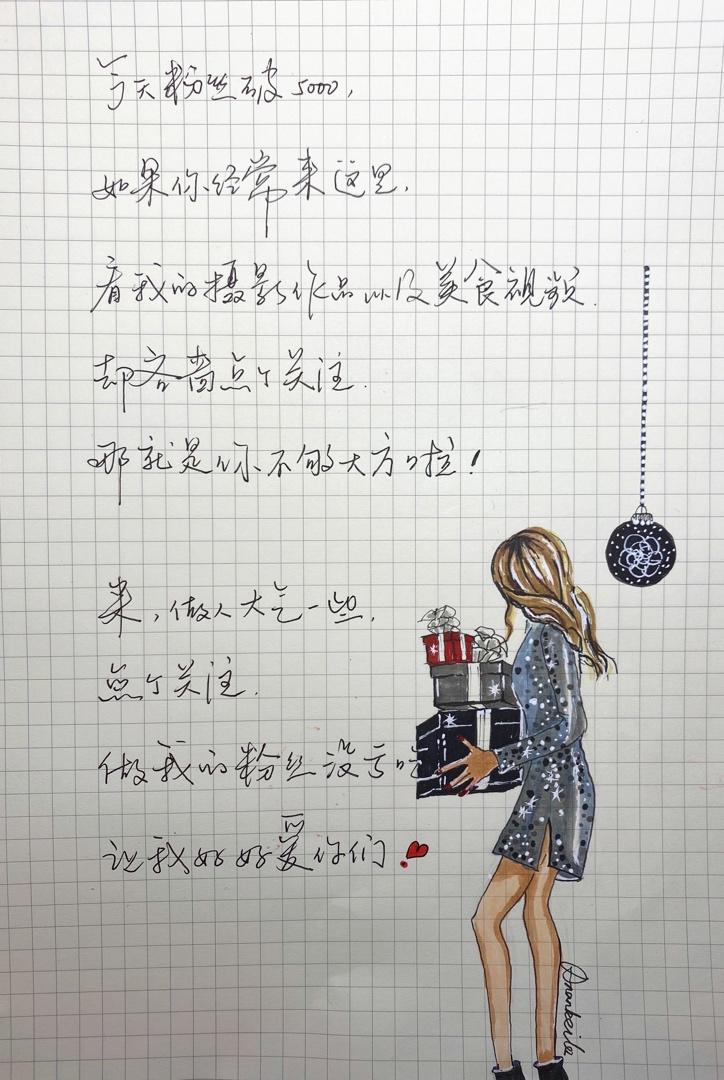 今天粉丝破5000，
如果你经常来这里，
看我的摄影作品以及美食视频.
却吝啬点个关注.
那就是你不够大方啦！
来，做人大气一些，
点个关注.
做我的粉丝没亏吃
让我好好爱你们